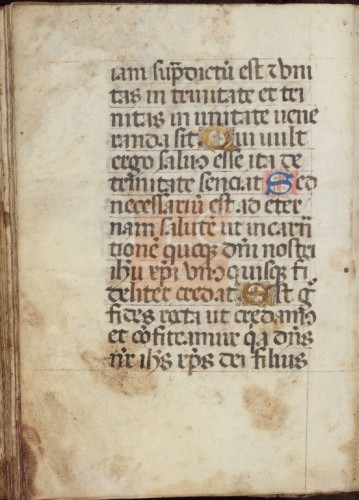 iam sup̃dictũ est ⁊ vni
tas in trinitate et tri
nitas in unitate vene
randa sit Qui uult
ergo saluus esse ita de
trinitate senciat Sed
necessariũ est ad eter
nam salutẽ ut incarn̄
tionẽ quoqꝫ dñi nostri
ihũ xp̃i vnusquisqꝫ fi
deliter credat Est g̃
fides recta ut credamꝰ
et cõfiteamur q̃a dñs
nr̃ ihũs xp̃s dei filius